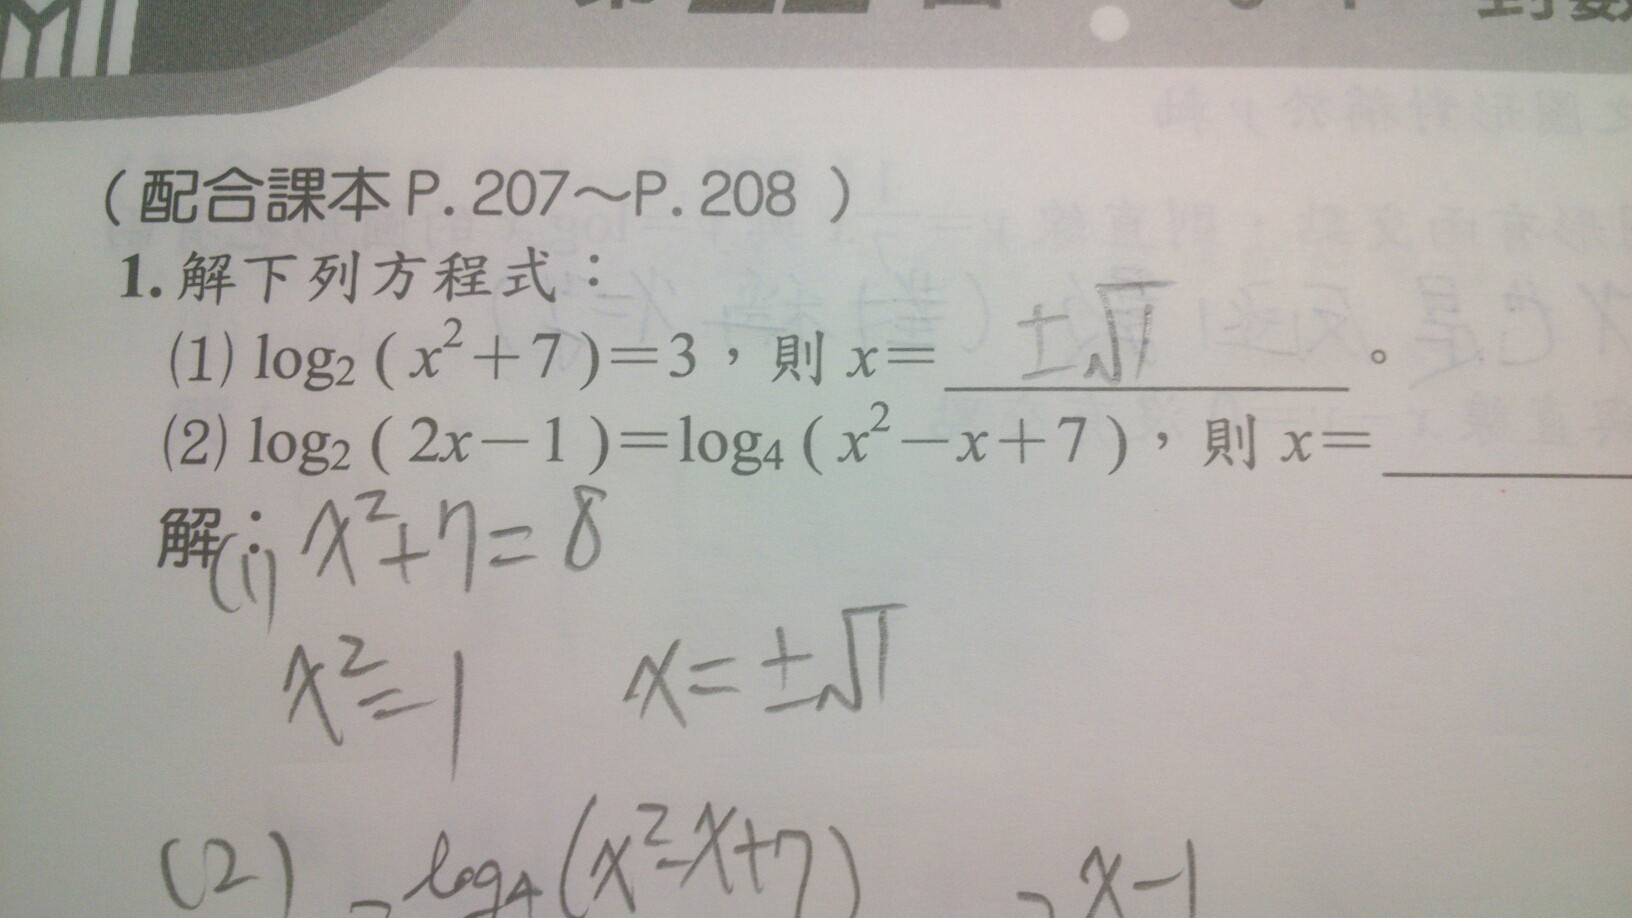 (配合課本P.207～P.208)
1.解下列方程式：
(1) log₂(x²+7)=3，則 x= ±√1 。
(2) log₂(2x－1)=log₄(x²－x+7)，則 x=
解：(1) x²+7=8
x²=1 x=±√1
(2) log₄(x²-x+7) x-1